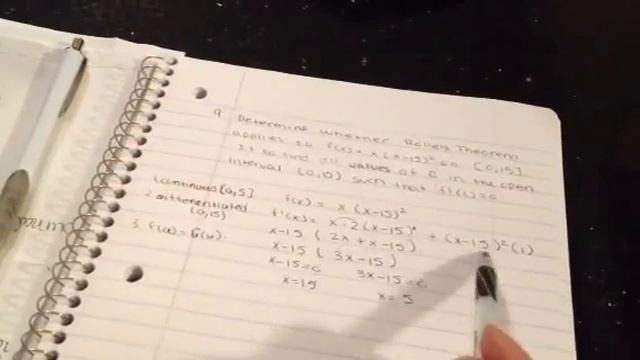 9 Determine whether Rolle's Theorem
applies to f(x) = x(x-15)² on [0,15]
If so find all values of c in the open
interval (0,15) such that f'(c)=0
1 continuous [0,15]
2 differentiated
(0,15)
3. f(a) = f(b).
f(x) = x (x-15)²
f'(x) = x·2(x-15)¹ + (x-15)²(1)
x-15 ( 2x + x-15)
x-15 ( 3x-15 )
x-15=0 3x-15=0
x=15 x= 5